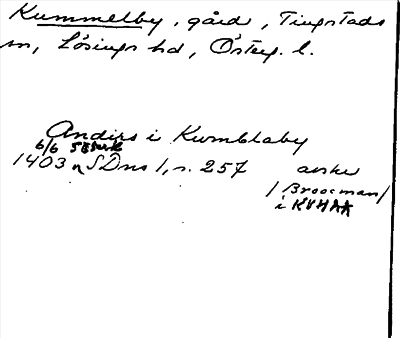 Kummelby, gård, Tingstads
sn, Lösings hd, Österg. l.
Anders i Kumblaby
6/6
1403 SDns 1, s. 257 avskr
/Broocman/
i KVHAA